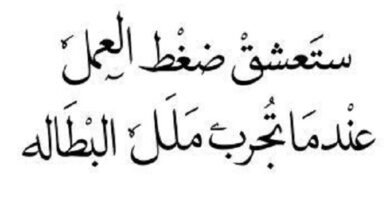 ستَعشقْ ضغْط العمل
عنْدمَا تُجرب مَلَل البْطَاله